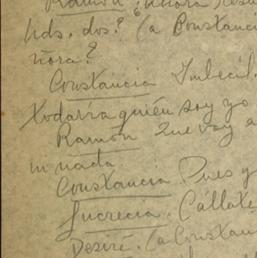 Ramón. ¿Ahora
hds. dos? (a Constanci
ñora?
Constancia Imbécil.
todavía quién soy yo
Ramón Que voy a
m nada.
Constancia. Pues y
Lucrecia. Cállate
Desiré. (a Constan